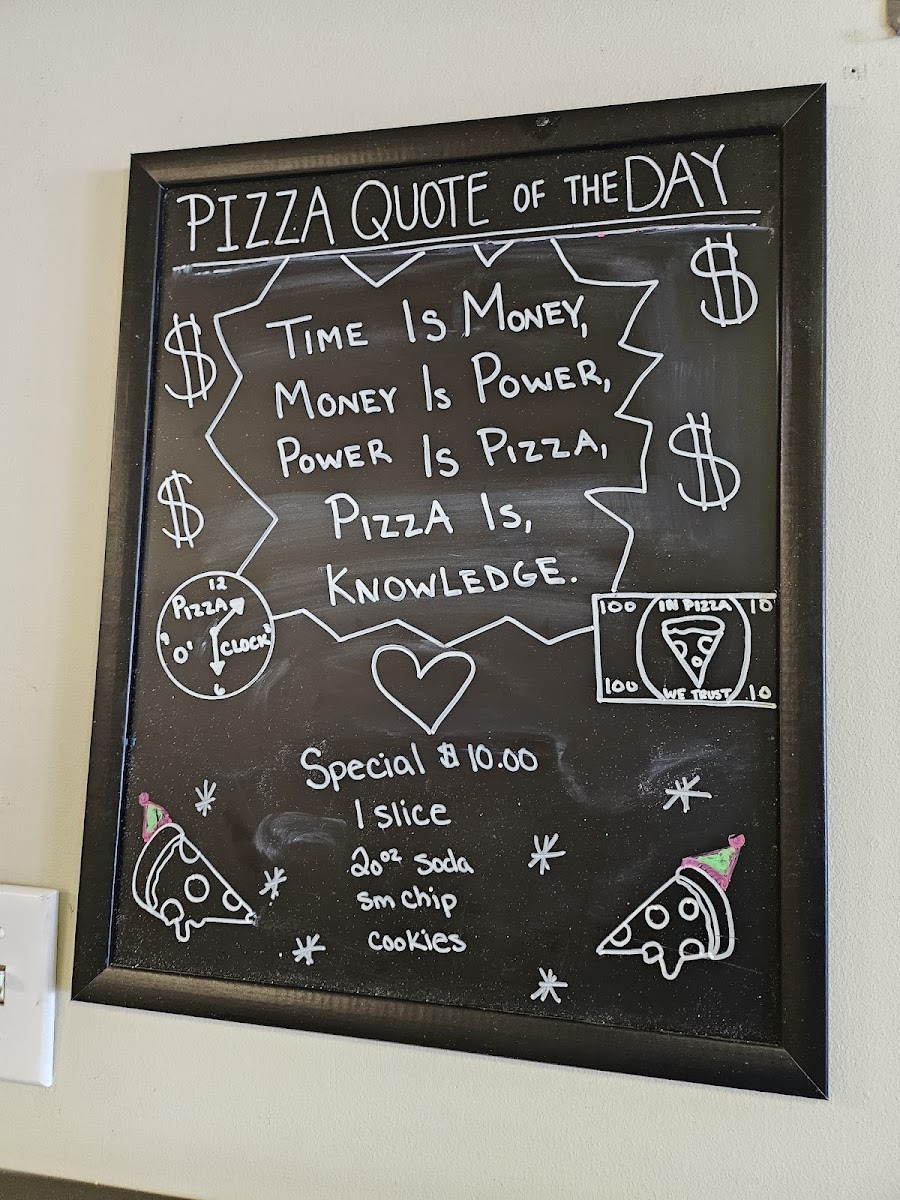 PIZZA QUOTE OF THE DAY
$
$
TIME IS MONEY,
MONEY IS POWER,
POWER IS PIZZA,
$
$
PIZZA IS,
KNOWLEDGE.
12
PIZZA
9 O' CLOCK 3
6
100 IN PIZZA 10
100 WE TRUST 10
Special $10.00
1 slice
20oz soda
sm chip
cookies